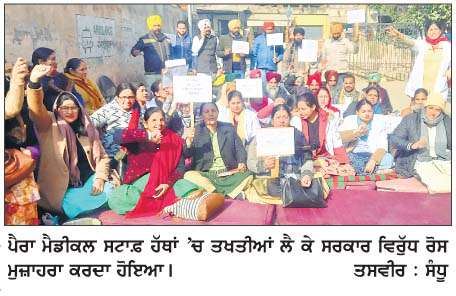 ਪੈਰਾ ਮੈਡੀਕਲ ਸਟਾਫ਼ ਹੱਥਾਂ 'ਚ ਤਖਤੀਆਂ ਲੈ ਕੇ ਸਰਕਾਰ ਵਿਰੁੱਧ ਰੋਸ
ਮੁਜ਼ਾਹਰਾ ਕਰਦਾ ਹੋਇਆ। ਤਸਵੀਰ : ਸੰਧੂ